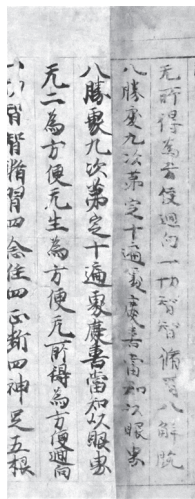 无所得為方便迴向一切智智脩習八解脫
八勝處九次第定十遍處慶喜當知以眼處
八勝處九次第定十遍處慶喜當知以眼處
无二為方便无生為方便无所得為方便迴向
一切智智脩習四念住四正斷四神足五根